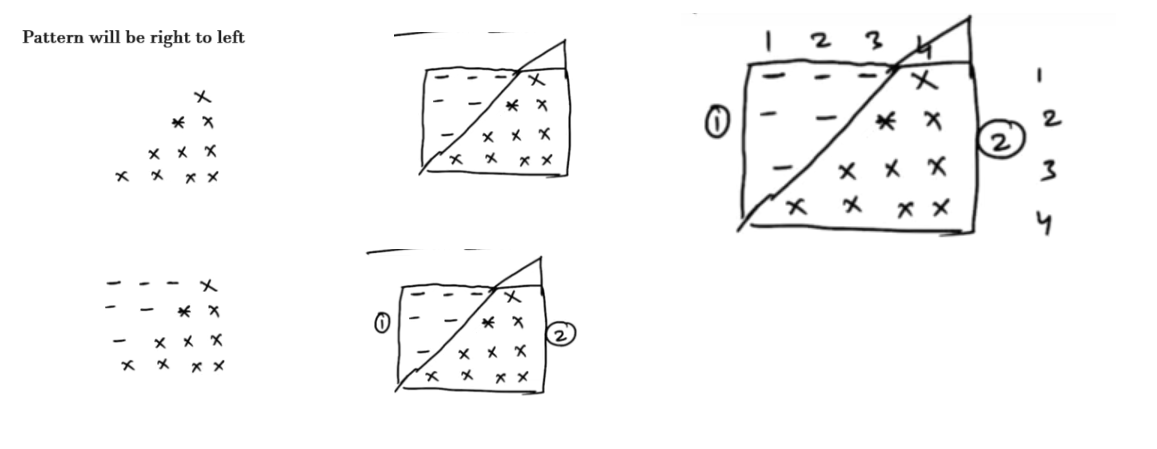 Pattern will be right to left
x
* x
x x x
x x x x
- - - x
- - * x
- x x x
x x x x
- - - x
- - * x
- x x x
x x x x
① ②
- - - x
- - * x
- x x x
x x x x
1 2 3 4
① ②
- - - x 1
- - * x 2
- x x x 3
x x x x 4